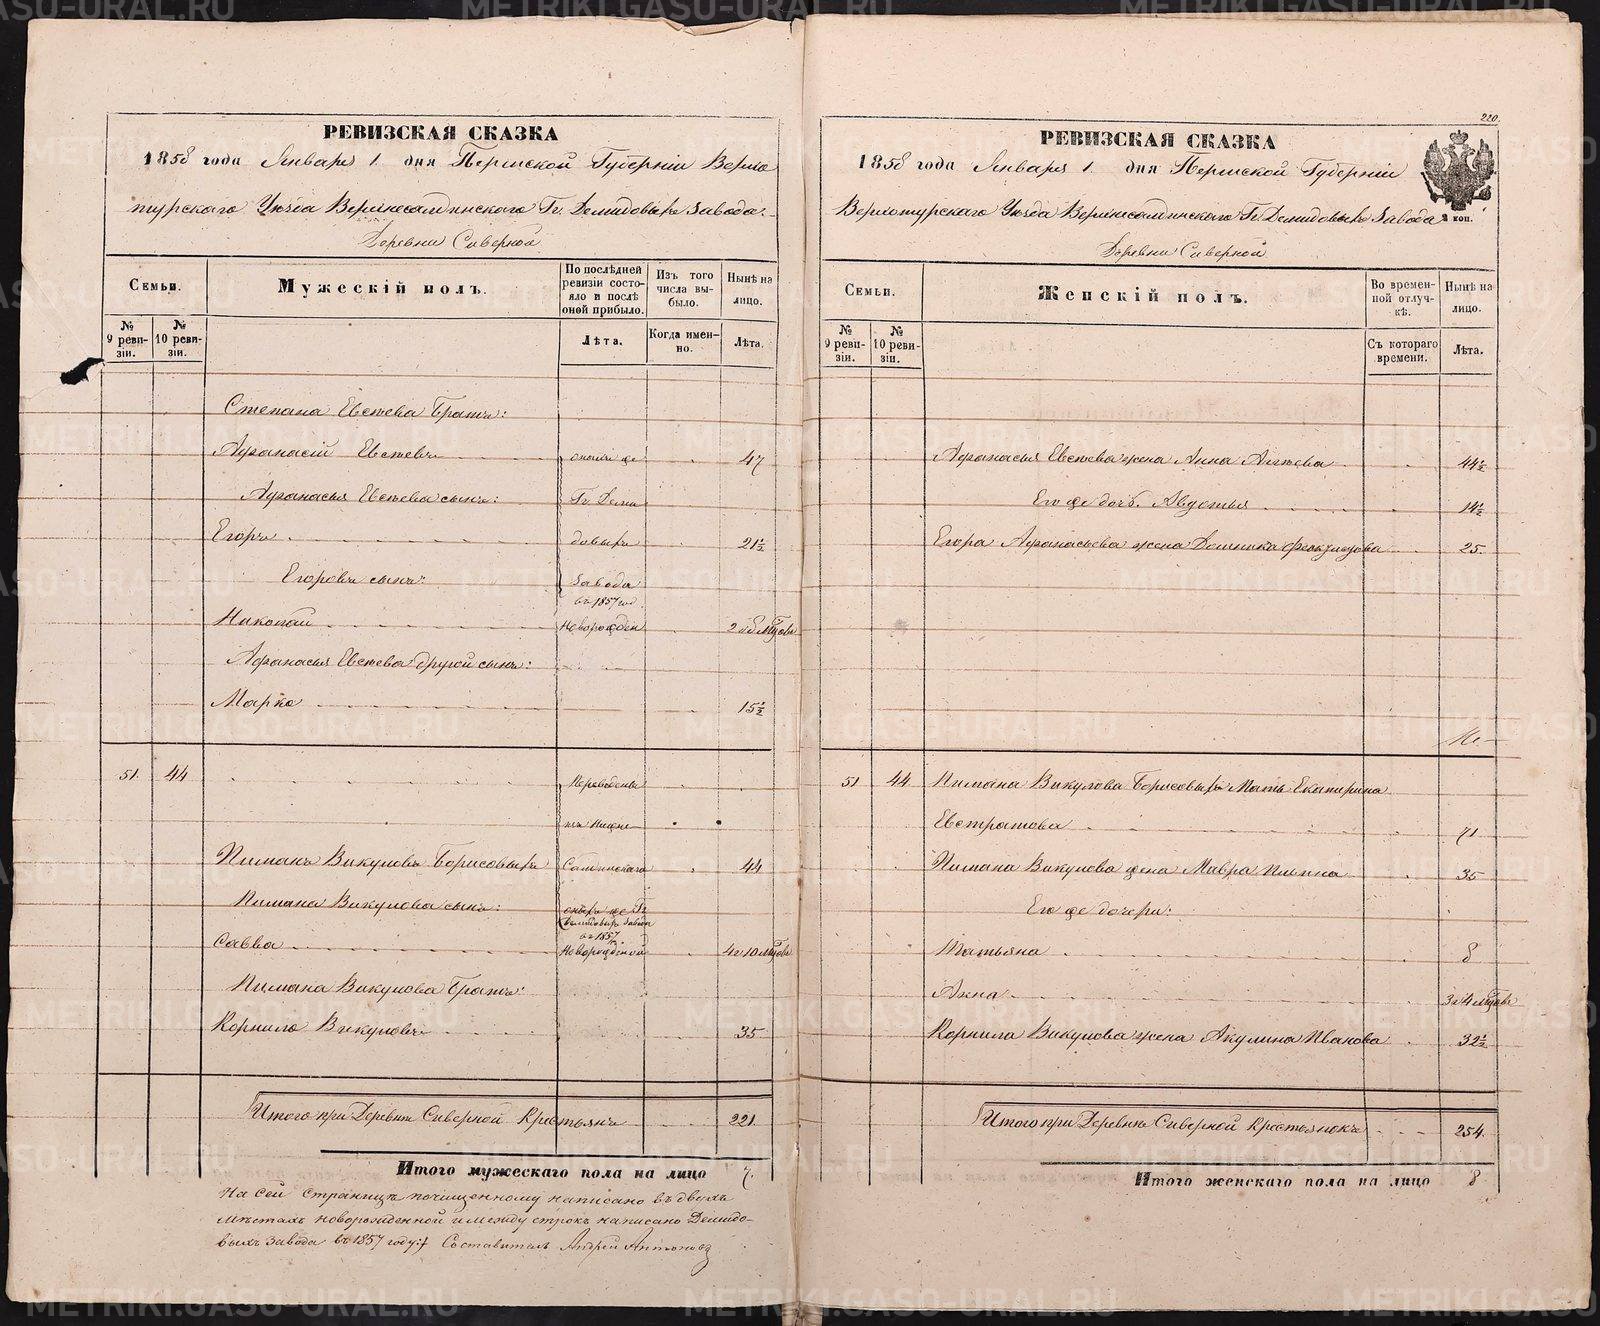 РЕВИЗСКАЯ СКАЗКА
1858 года Января 1. дня Пермской Губерніи Верхо
турскаго Уѣзда Верхнесалдинскаго Гг. Демидовыхъ Завода.
Деревни Сиверной
Семьи.
Мужескій полъ.
По послѣдней ревизіи состояло и послѣ оной прибыло.
Изъ того числа выбыло.
Нынѣ на лицо.
№ 9 ревизіи.
№ 10 ревизіи.
Лѣта.
Когда именно.
Лѣта.
Степана Евсѣева Братъ:
Афанасій Евсѣевъ 47
Афанасья Евсѣева сынъ: Гг. Деми
Егоръ довыхъ 21½
Егоровъ сынъ: Завода
въ 1857 год
Николай Новорожден 2
Афанасья Евсѣева другой сынъ:
Марко 15½
51. 44 Переведены
изъ Нижне
Пиманъ Викуловъ Борисовыхъ Салдинскаго 44
Пимана Викулова сынъ: Гг.
Демидовыхъ Завода
въ 1857
Савва Новорожденой 4 и 10 мѣсяцовъ
Пимана Викулова Братъ:
Корнило Викуловъ 35
Итого при Деревнѣ Сиверной Крестьянъ 221.
Итого мужескаго пола на лицо 7.
На сей страницѣ почищенному написано въ двухъ
мѣстахъ новорожденной и между строкъ написано Демидо-
выхъ Завода въ 1857 году: Составитель Андрей Антоновъ
220.
РЕВИЗСКАЯ СКАЗКА
1858 года Января 1. дня Пермской Губерніи
Верхотурскаго Уѣзда Верхнесалдинскаго Гг. Демидовыхъ Завода
коп.
Деревни Сиверной
Семьи.
Женскій полъ.
Во временной отлучкѣ.
Нынѣ на лицо.
№ 9 ревизіи.
№ 10 ревизіи.
Съ котораго времени.
Лѣта.
Афанасья Евсѣева жена Анна 44½
Его же дочь Авдотья 14½
Егора Афанасьева жена 25.
51 44 Пимана Викулова Борисовыхъ Мать Екатерина
Евстратова 71
Пимана Викулова жена Мавра Ильина 35
Его же дочери:
Татьяна 8
Анна 3 и 4 мѣсяцовъ
Корнила Викулова жена Акулина Иванова 32½
Итого при Деревнѣ Сиверной Крестьянокъ 254.
Итого женскаго пола на лицо 8
METRIKI.GASO-URAL.RU